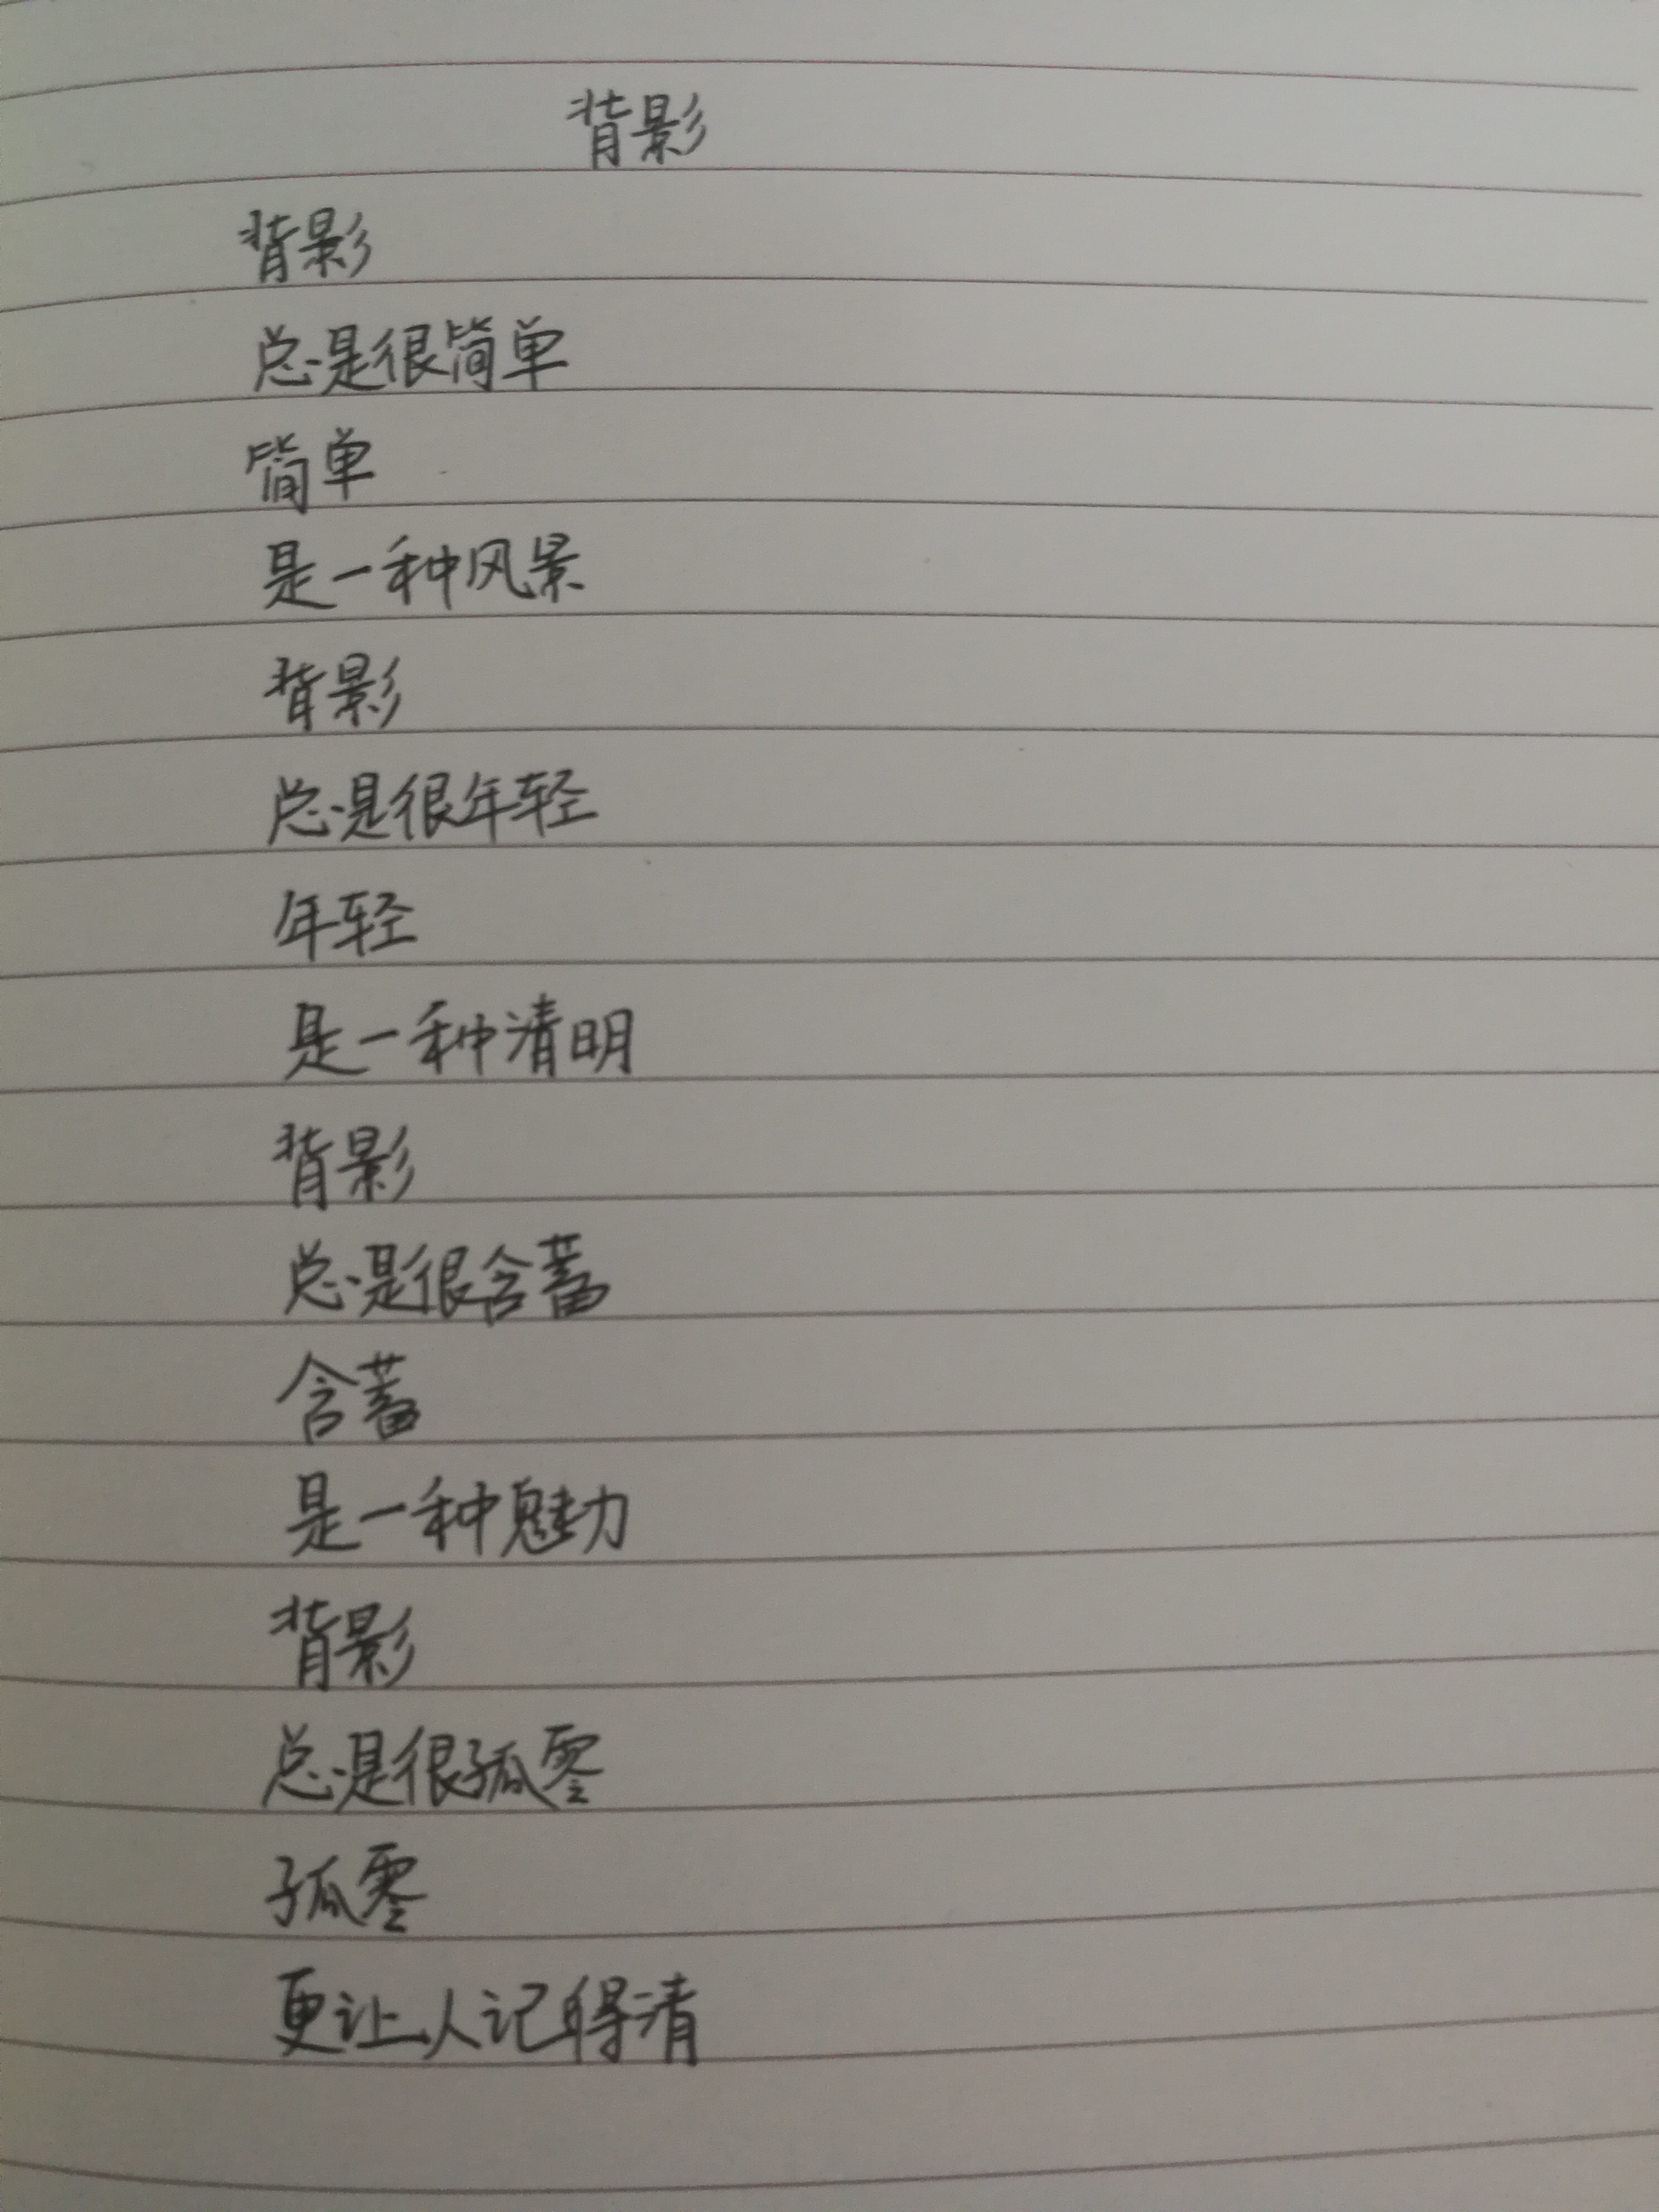 背影
背影
总是很简单
简单
是一种风景
背影
总是很年轻
年轻
是一种清明
背影
总是很含蓄
含蓄
是一种魅力
背影
总是很孤零
孤零
更让人记得清